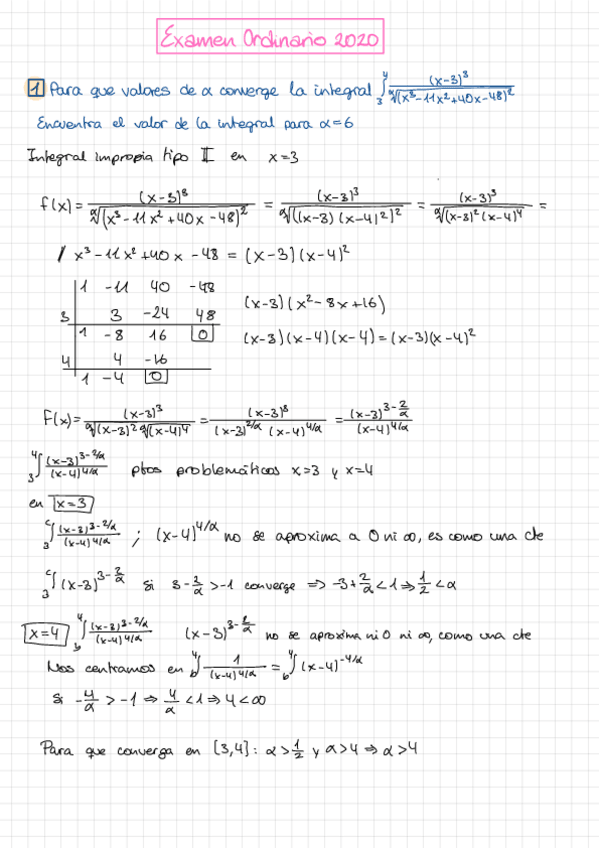 Examen Ordinario 2020
1 Para que valores de α converge la integral ₃∫⁴ (x-3)³/ᵅ√(x³-11x²+40x-48)²
Encuentra el valor de la integral para α=6
Integral impropia tipo II en x=3
f(x)= (x-3)³/ᵅ√(x³-11x²+40x-48)² = (x-3)³/ᵅ√((x-3)(x-4)²)² = (x-3)³/ᵅ√(x-3)²(x-4)⁴ =
/ x³-11x²+40x-48 = (x-3)(x-4)²
1 -11 40 -48
3 3 -24 48
1 -8 16 0
4 4 -16
1 -4 0
(x-3)(x²-8x+16)
(x-3)(x-4)(x-4)=(x-3)(x-4)²
f(x)= (x-3)³/ᵅ√(x-3)² ᵅ√(x-4)⁴ = (x-3)³/(x-3)^2/α (x-4)^4/α = (x-3)^3-2/α/(x-4)^4/α
₃∫⁴ (x-3)^3-2/α/(x-4)^4/α ptos problemáticos x=3 y x=4
en x=3
₃∫ᶜ (x-3)^3-2/α/(x-4)^4/α ; (x-4)^4/α no se aproxima a 0 ni ∞, es como una cte
₃∫ᶜ (x-3)^3-2/α si 3-2/α>-1 converge => -3+2/α<1 => 1/2<α
x=4 b∫⁴ (x-3)^3-2/α/(x-4)^4/α (x-3)^3-2/α no se aproxima ni 0 ni ∞, como una cte
Nos centramos en b∫⁴ 1/(x-4)^4/α = b∫⁴ (x-4)^-4/α
Si -4/α > -1 => 4/α <1 => 4<∞
Para que converga en [3,4]: α>1/2 y α>4 => α>4